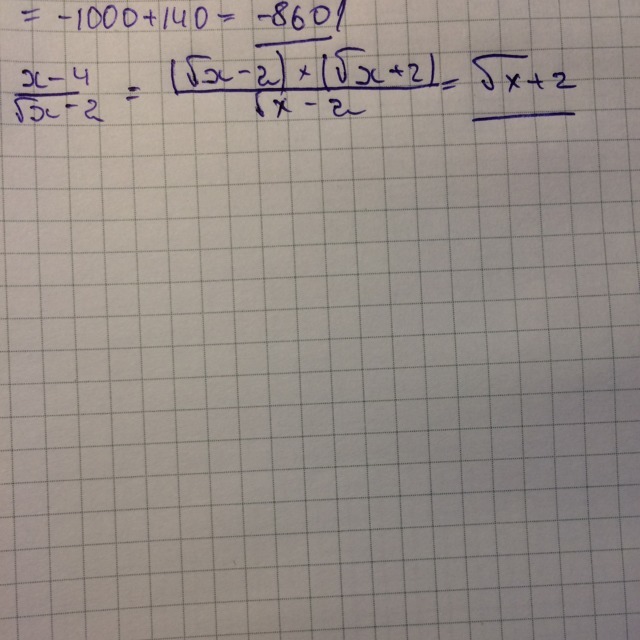 = -1000+140 = -860
x-4/√x-2 = (√x-2)×(√x+2)/√x-2 = √x+2